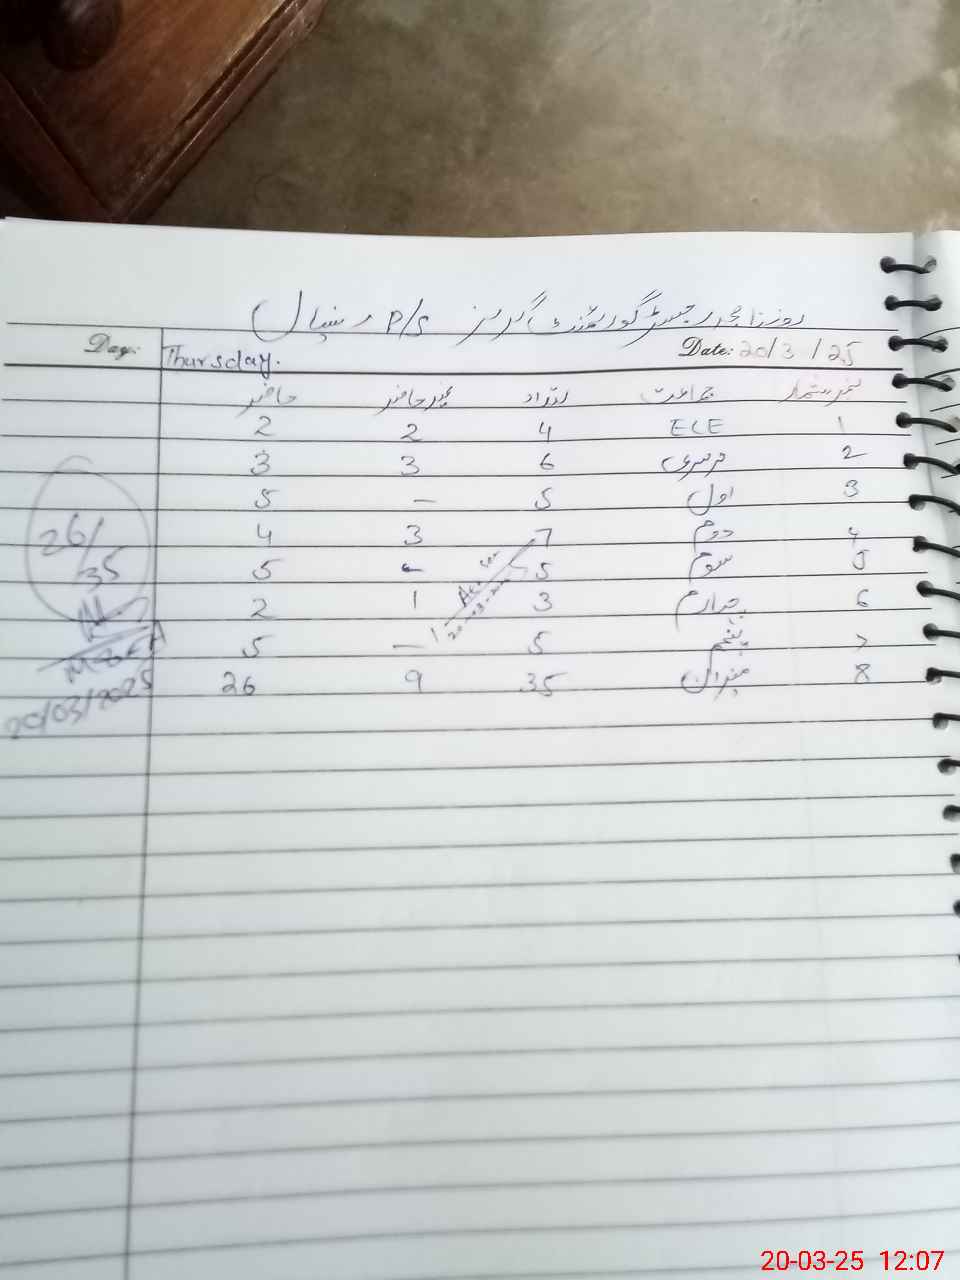 روزنامچہ رجسٹر گورنمنٹ گرلز P/S
Day: Thursday. Date: 20/3/25
نمبر شمار جماعت تعداد غیر حاضر حاضر
1 ECE 4 2 2
2 نرسری 6 3 3
3 اول 5 - 5
4 دوم 7 3 4
5 سوم 5 - 5
6 چہارم 3 1 2
7 پنجم 5 - 5
8 میزان 35 9 26
26/35
20/03/2025
20-03-25 12:07